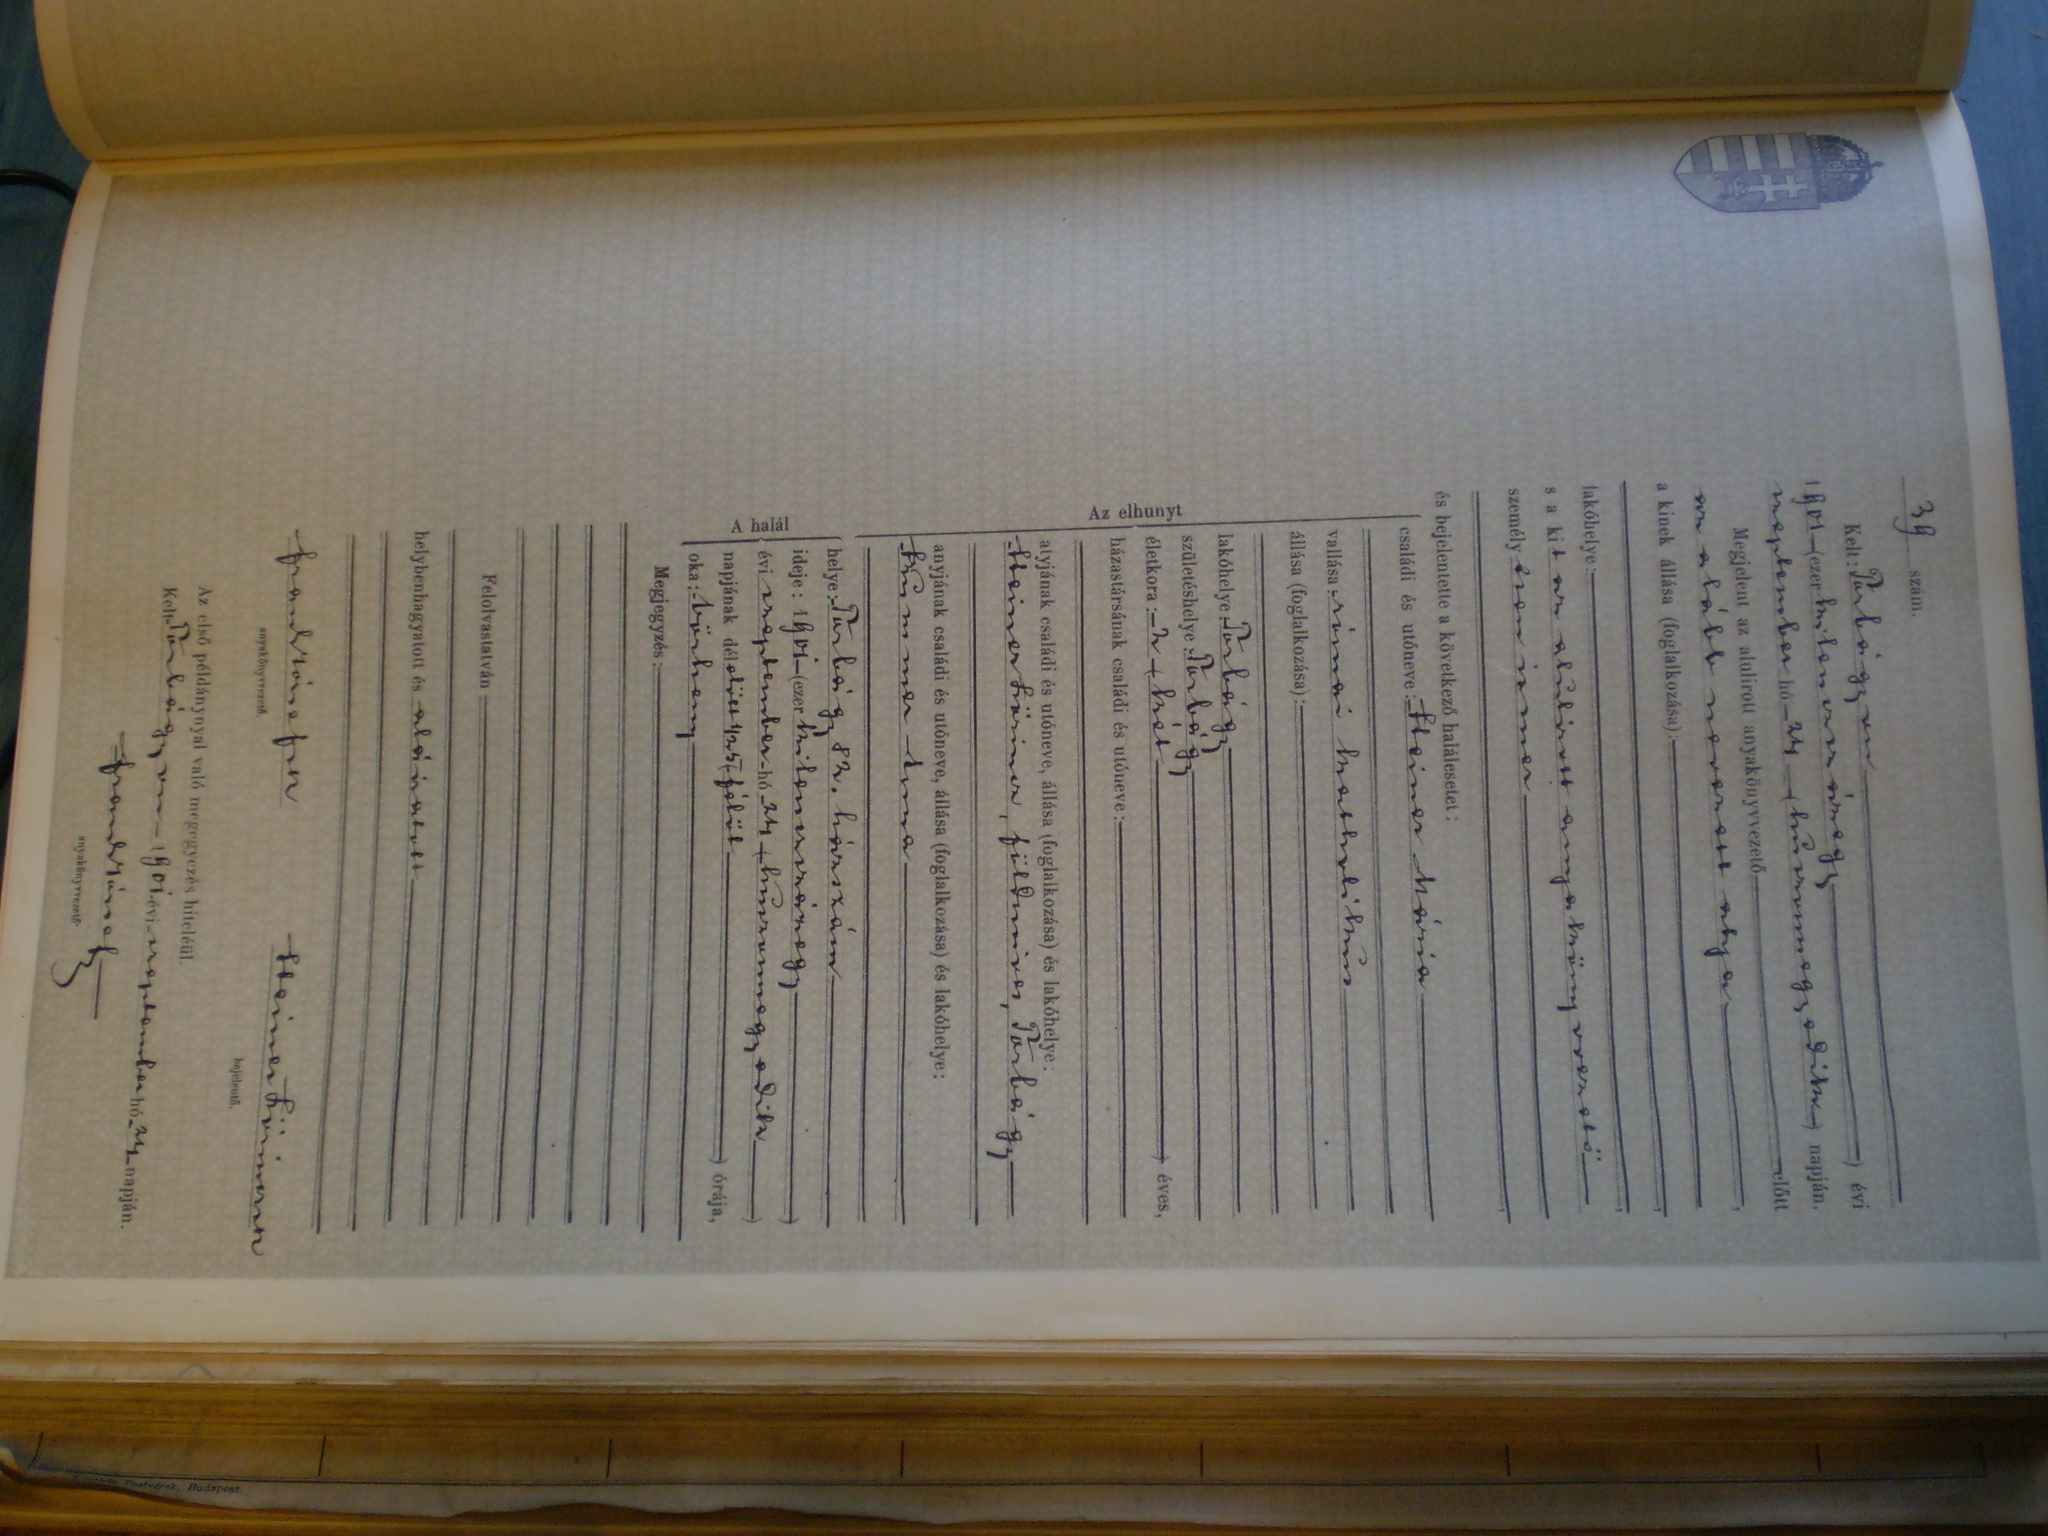 39 szám.
Kelt: Torbágyon
1901 (ezerkilenczszázegy) évi
szeptember hó 21 (huszonegyedik) napján.
Megjelent az alulirott anyakönyvvezető előtt
az alább nevezett atyja,
a kinek állása (foglalkozása):
lakóhelye:
s a kit az alulirott anyakönyvvezető
személyesen ismer,
és bejelentette a következő halálesetet:
Az elhunyt
családi és utóneve: Steiner Mária
vallása: római katholikus
állása (foglalkozása):
lakóhelye: Torbágy
születéshelye: Torbágy
életkora: 2 (két) éves,
házastársának családi és utóneve:
atyjának családi és utóneve, állása (foglalkozása) és lakóhelye:
Steiner Lőrincz, földmíves, Torbágy
anyjának családi és utóneve, állása (foglalkozása) és lakóhelye:
Anna
A halál
helye: Torbágy 82. házszám
ideje: 1901 (ezerkilenczszázegy)
évi szeptember hó 21 (huszonegyedik)
napjának délelőtt 1/2 5 (fél öt) órája,
oka:
Megjegyzés:
Felolvastatván
helybenhagyatott és aláiratott
anyakönyvvezető.
Steiner Lőrincz
bejelentő.
Az első példánynyal való megegyezés hiteléül.
Kelt: Torbágyon 1901 évi szeptember hó 21 napján.
anyakönyvvezető.
Budapest.